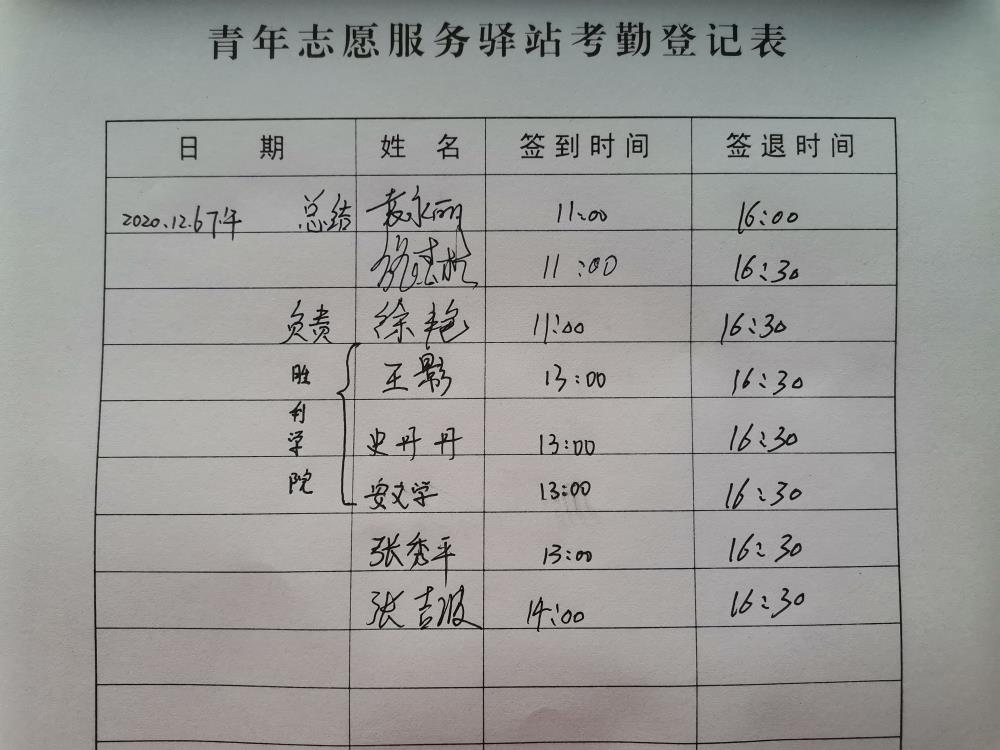 青年志愿服务驿站考勤登记表
日 期 姓 名 签到时间 签退时间
2020.12.6下午 总结 袁永丽 11:00 16:00
11:00 16:30
负责 徐艳 11:00 16:30
王影 13:00 16:30
史丹丹 13:00 16:30
安文学 13:00 16:30
胜利学院
张秀平 13:00 16:30
张吉波 14:00 16:30